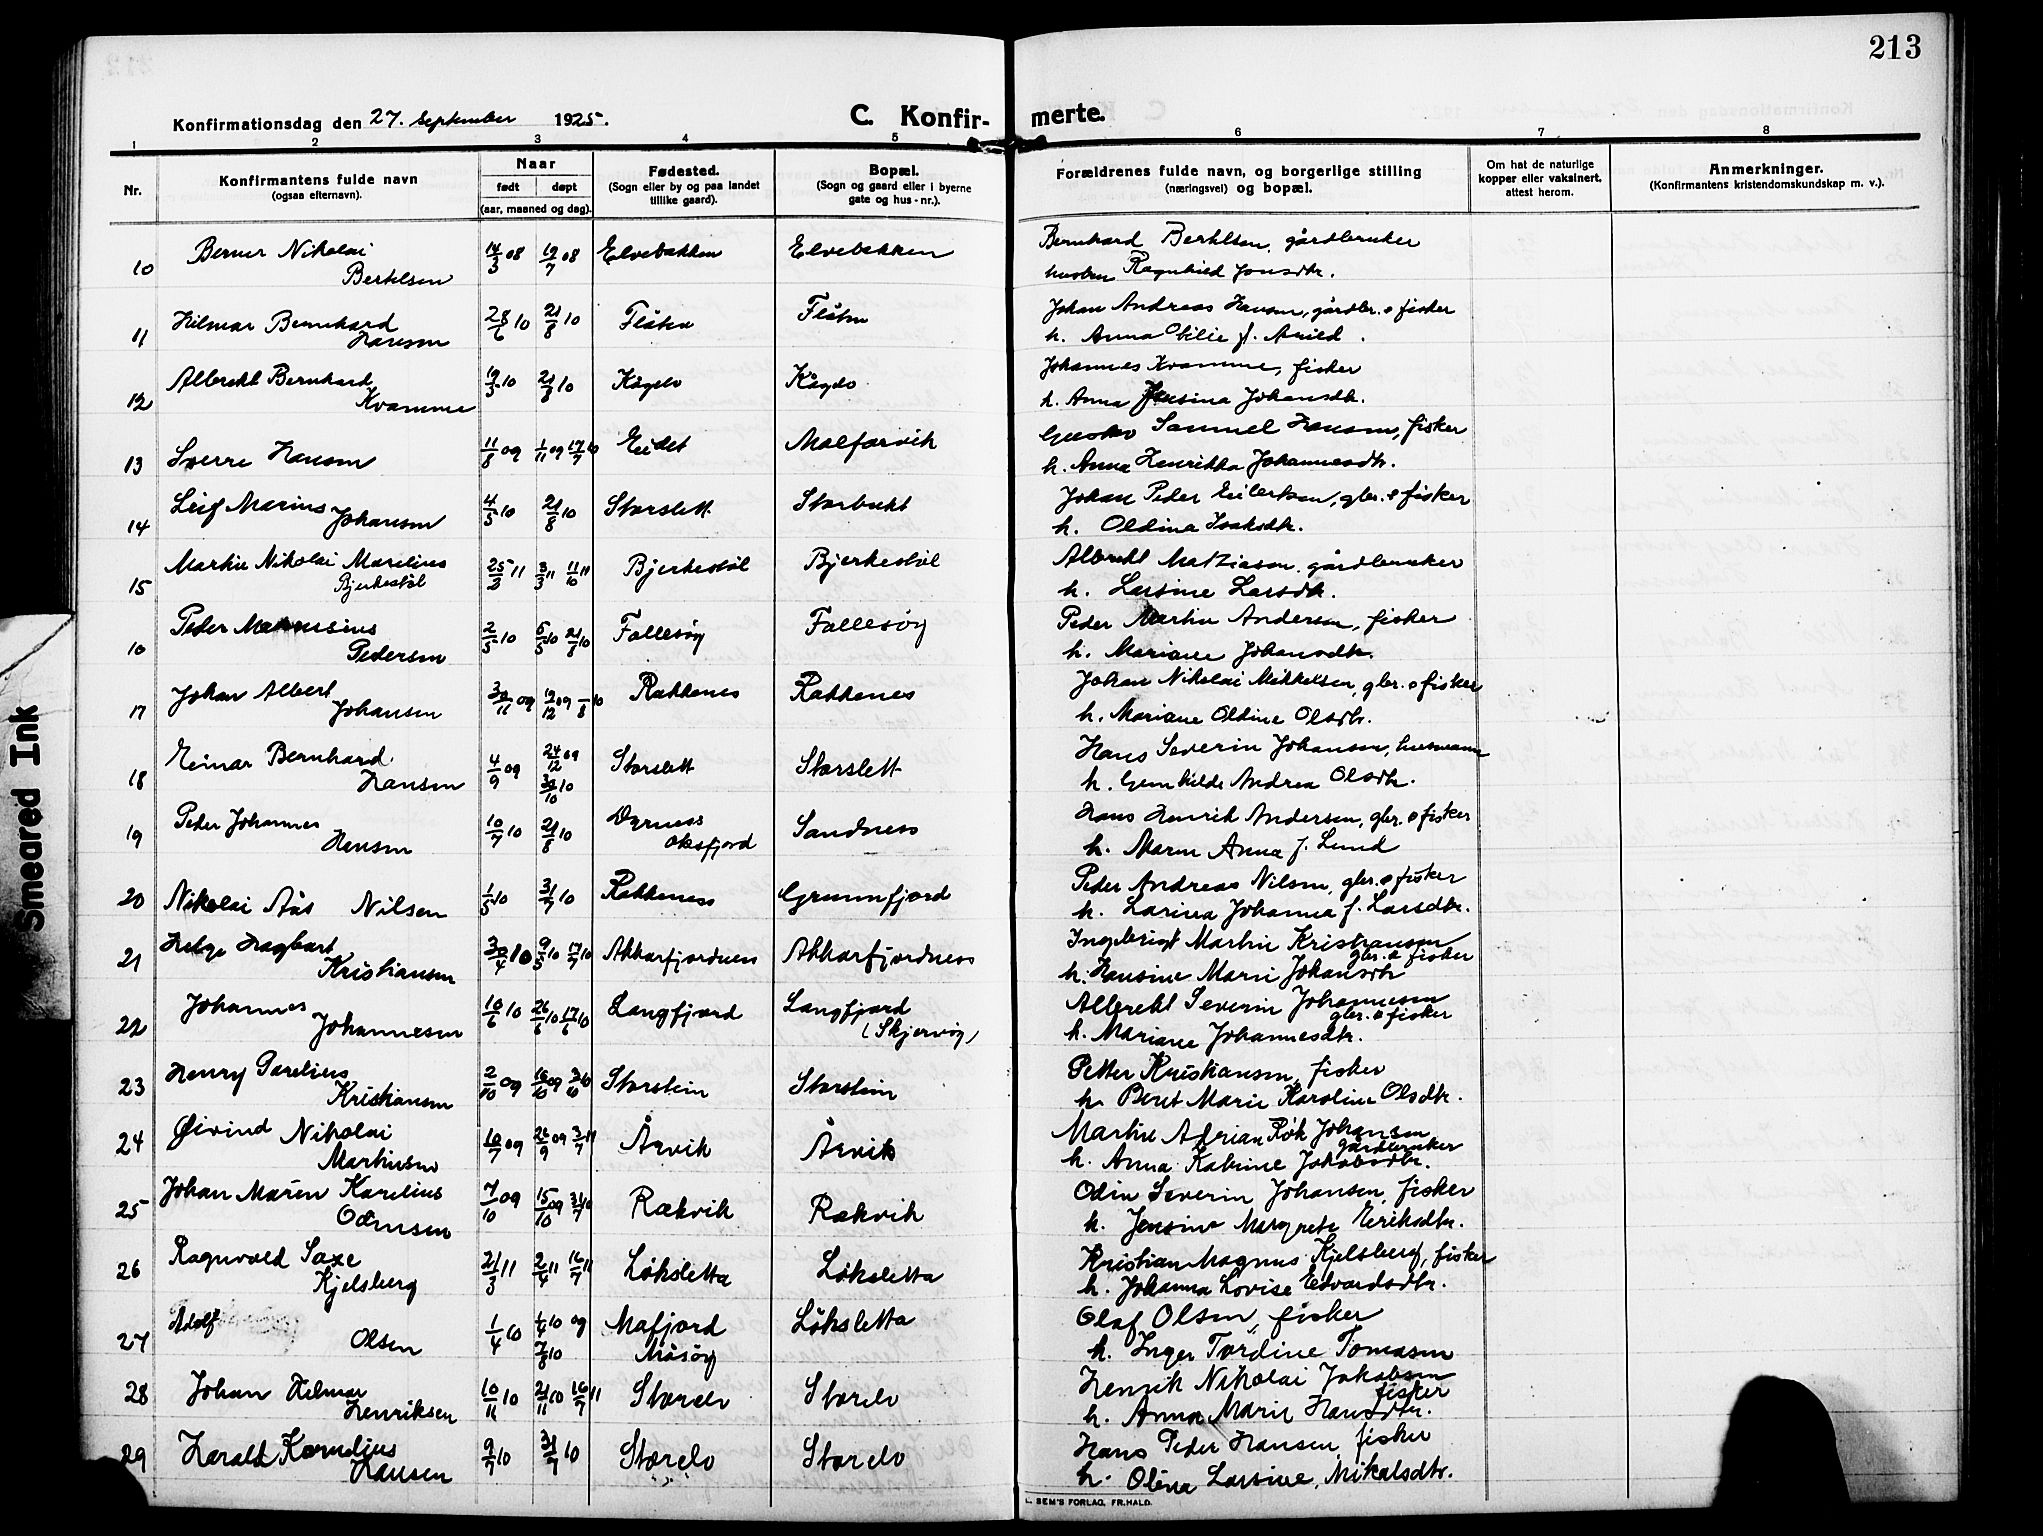 213
Konfirmationsdag den 27. September 1925.
C. Konfir- merte.
1 2 3 4 5 6 7 8
Nr.
Konfirmantens fulde navn
(ogsaa efternavn).
Naar
født døpt
(aar, maaned og dag).
Fødested.
(Sogn eller by og paa landet
tillike gaard).
Bopæl.
(Sogn og gaard eller i byerne
gate og hus-nr.).
Forældrenes fulde navn, og borgerlige stilling
(næringsvei) og bopæl.
Om hat de naturlige
kopper eller vaksinert,
attest herom.
Anmerkninger.
(Konfirmantens kristendomskundskap m. v.).
Berner Nikolai 14/3 08 19/7 08 Elvebakken Elvebakken Bernhard Bertelsen, gårdbruker
10 Bertelsen hustru Ragnhild Jonsdtr.
Hilmar Bernhard 28/6 10 21/8 10 Flåten Flåten Johan Andreas Hansen, gårdbr. o fisker
11 Hansen h. Anna Otilie f. Arild.
Albrekt Bernhard 19/3 10 Kågelv Kågelv Johannes Kvamme, fisker
12 Kvamme h. Anna Jensina Johansdtr.
13 Sverre Hansen 11/8 09 1/11 09 17/7 10 Eidet Malfarvik Gustav Samuel Hansen, fisker
h. Anna Henrikka Johannesdtr.
Leif Marius 4/5 10 21/8 10 Storslett Storbukt Johan Peder Eilertsen, gbr. o fisker
14 Johansen h. Oldina Isaksdtr.
Martin Nikolai Marelius 3/3 11 11/6 11 Bjerkestøl Bjerkestøl Albrekt Mathiasen, gårdbruker
15 Bjerkestøl h. Larsine Larsdtr.
Peder 2/5 10 5/5 10 21/8 10 Follesøy Follesøy Peder Martin Andersen, fisker
10 Pedersen h. Mariane Johansdtr.
Johan Albert 30/11 09 19/12 09 Rakkenes Rakkenes Johan Nikolai Mikkelsen, gbr. o fisker
17 Johansen h. Mariane Oldine Olsdtr.
Einar Bernhard 4/9 09 24/12 09 Storslett Storslett Hans Severin Johansen, husmann
18 Hansen 30/10 10 h. Gunhilde Andrea Olsdtr.
Peder Johannes 10/7 10 21/8 10 Oksfjord Sandness Hans Henrik Andersen, gbr. o fisker
19 Hensen h. Maren Anna f. Lund
20 Nikolai Ås Nilsen 1/5 10 31/7 10 Rakkeness Grunnfjord Peder Andreas Nilsen, gbr. o fisker
h. Larina Johanna f. Larsdtr.
Helge Hagbart 30/4 10 9/5 10 17/7 10 Akkarfjordness Akkarfjordness Ingebrigt Martin Kristiansen
21 Kristiansen gbr. o fisker
h. Hansine Marie Johansdtr
Johannes 10/6 10 26/6 10 17/6 10 Langfjord Langfjord Albrekt Severin Johannesen
22 Johannesen (Skjervøy) gbr. o fisker
h. Mariane Johannesdtr.
23 Henry Parelius 2/10 09 16/10 09 Storstein Storstein Petter Kristiansen, fisker
Kristiansen h. Beret Marie Karoline Olsdtr.
24 Øivind Nikolai 10/7 09 26/9 09 Årvik Årvik Martin Adrian Røk Johansen
Martinsen gårdbruker
h. Anna Katrine Jakobsdtr.
25 Johan Måren Karelius 7/10 09 15/10 09 31/7 10 Rakvik Rakvik Odin Severin Johansen, fisker
Odinsen h. Jensine Margrete Eriksdtr.
26 Ragnvald Saxe 21/3 11 2/4 11 16/7 11 Løksletta Løksletta Kristian Magnus Kjelsberg, fisker
Kjelsberg h. Johanna Lovise Edvardsdtr.
Adolf 1/4 10 1/4 10 og Mafjord Løksletta Olaf Olsen, fisker
27 Olsen 7/8 10 Måsøy h. Inger Tordine Tomasen
28 Johan Hilmar 10/11 10 21/11 10 16/7 11 Storelv Storelv Henrik Nikolai Jakobsen
Henriksen fisker
h. Anna Marie Hansdtr.
29 Harald Kornelius 9/7 10 31/7 10 Storelv Storelv Hans Peder Hansen, fisker
Hansen h. Olena Larsine Mikalsdtr.
L. SEM'S FORLAG, FR.HALD.
Smeared Ink